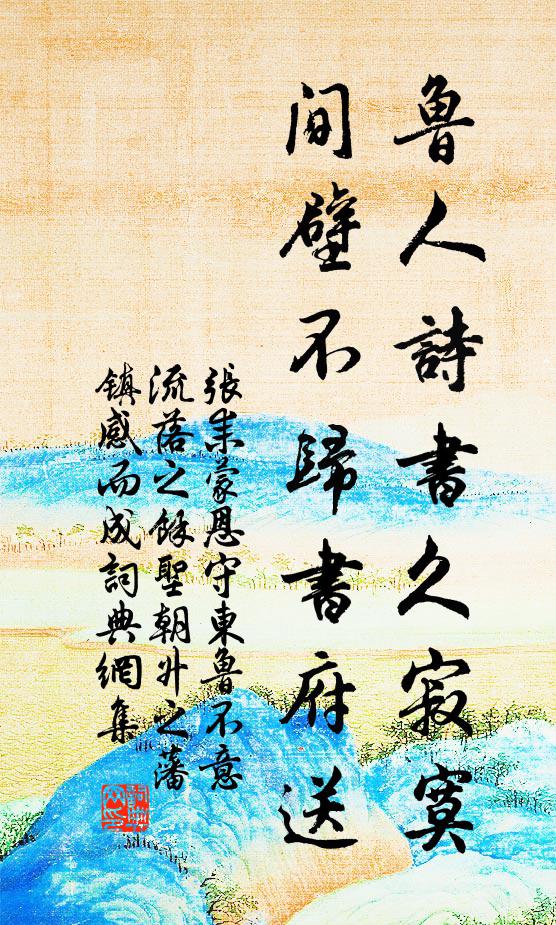 魯人詩書久寂寞
間壁不歸書府送
張耒蒙恩守東魯不意
流落之餘聖朝升之藩
鎮感而成詞典網集